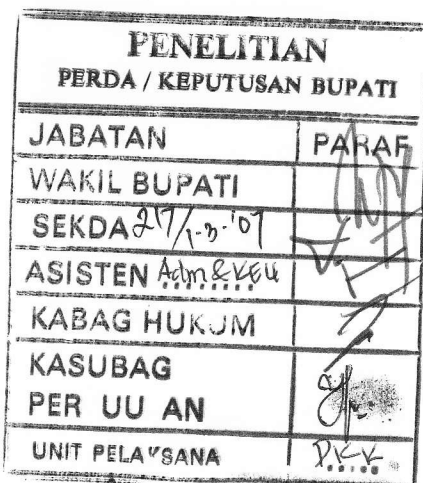 PENELITIAN
PERDA / KEPUTUSAN BUPATI
JABATAN PARAF
WAKIL BUPATI
SEKDA 217/1-3-'07
ASISTEN Adm & KEU
KABAG HUKUM
KASUBAG
PER UU AN
UNIT PELAKSANA P.K.K